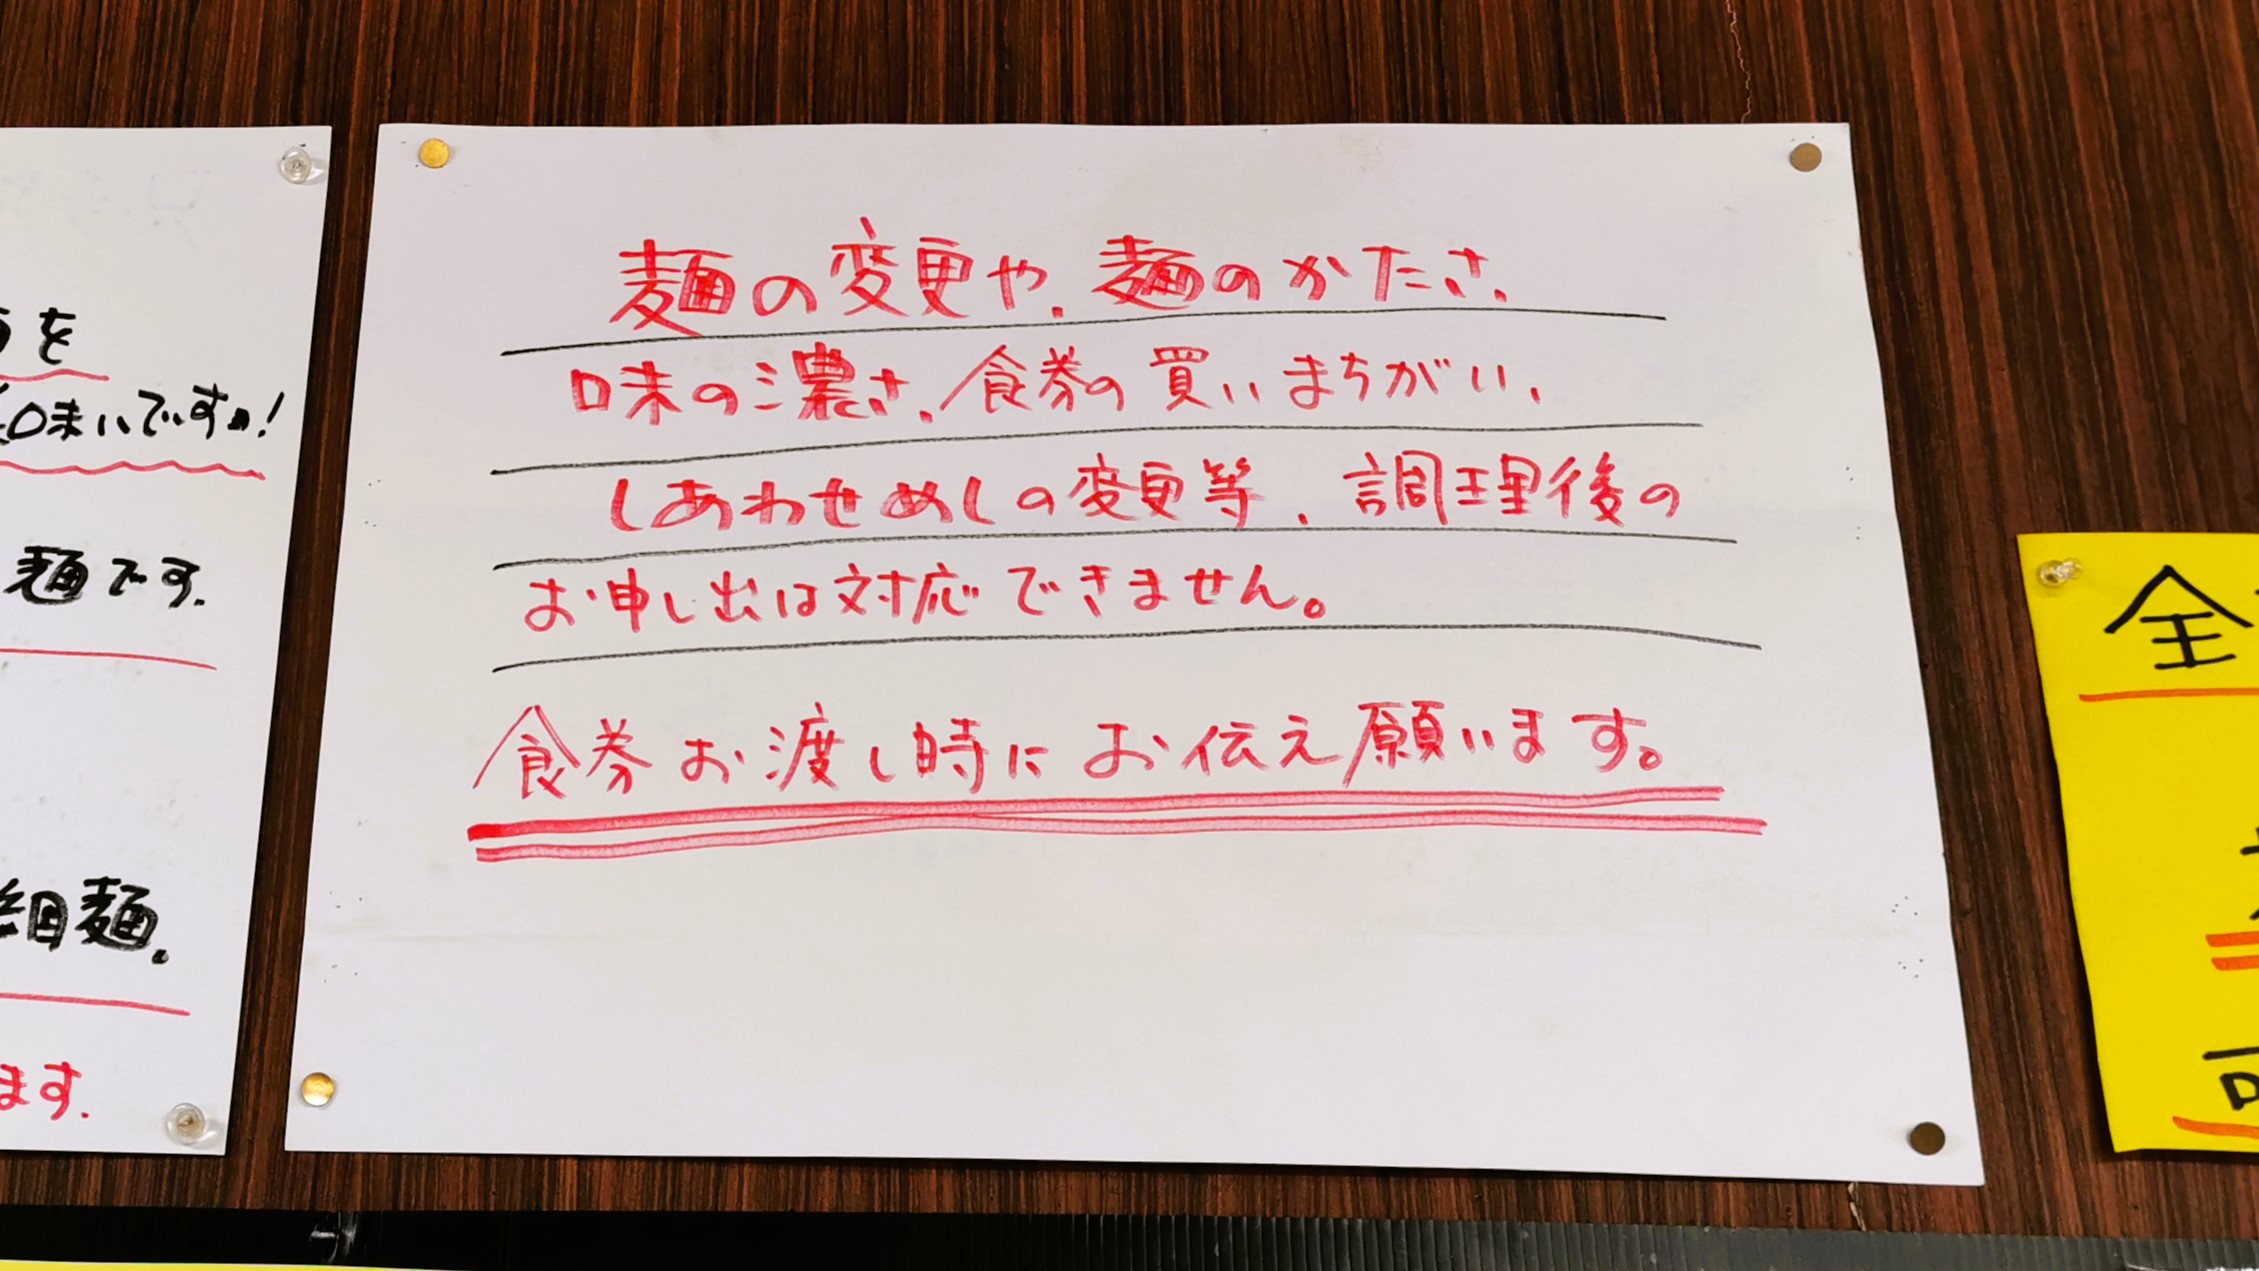 を
味いですよ!
麺です.
細麺.
ます.
麺の変更や、麺のかたさ、
味の濃さ、食券の買いまちがい、
しあわせめしの変更等、調理後の
お申し出は対応できません。
食券お渡し時にお伝え願います。
全
可